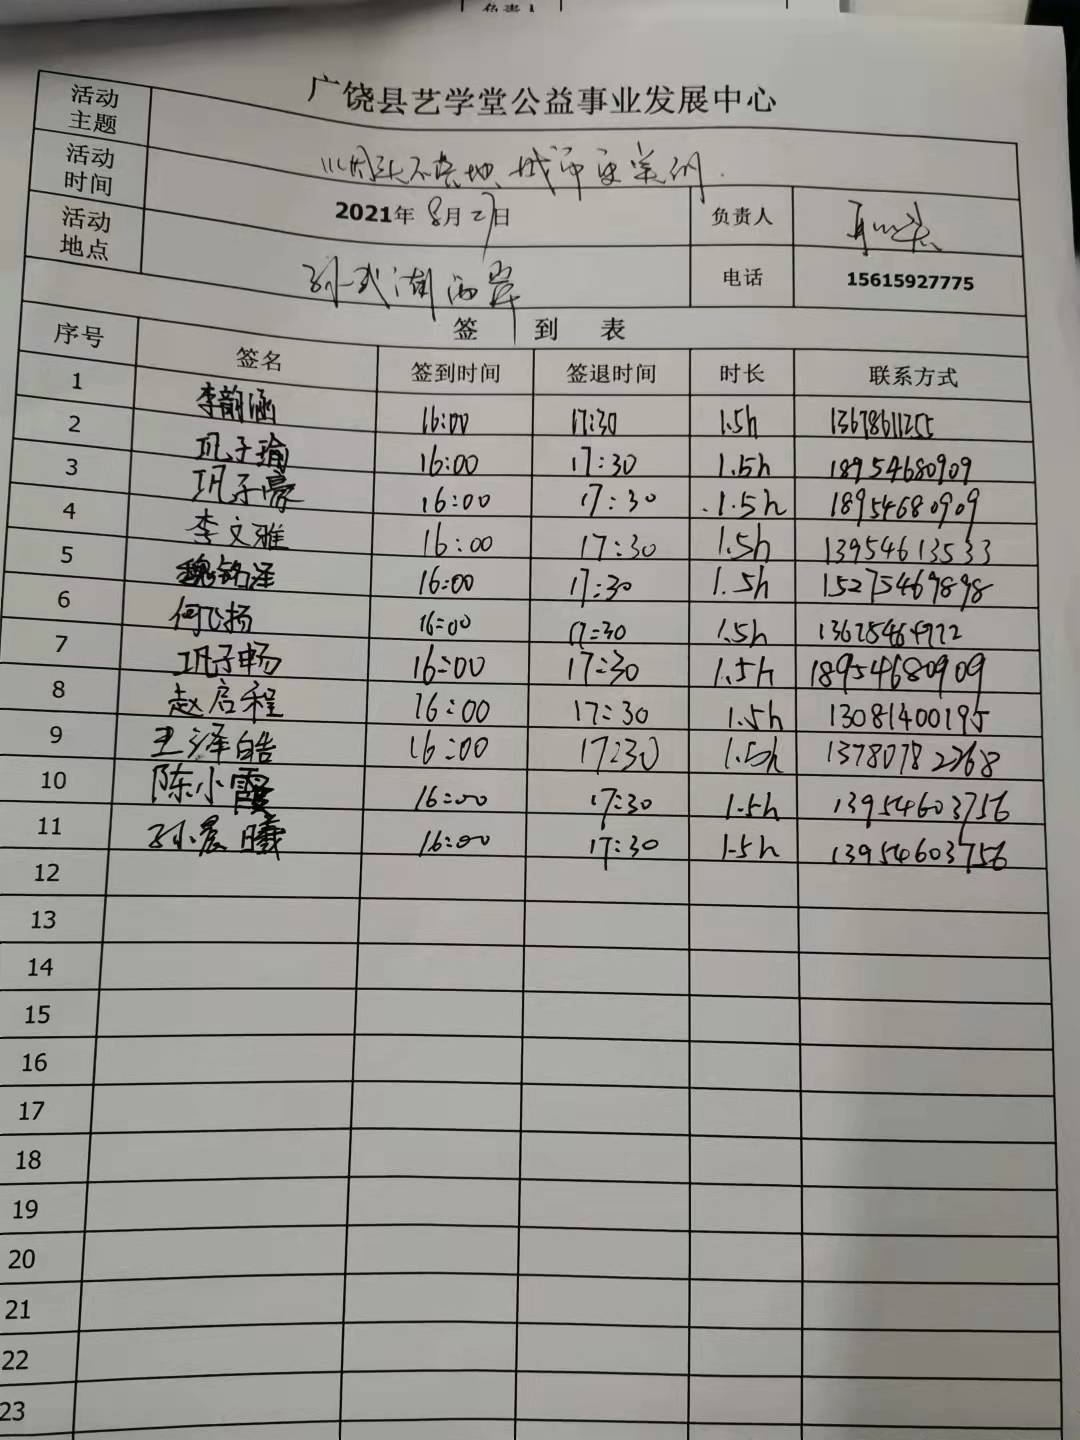 负责人
广饶县艺学堂公益事业发展中心
活动主题
烟头不落地、城市更美丽.
活动时间
2021年8月27日 负责人
活动地点
孙武湖西岸 电话 15615927775
签到表
序号 签名 签到时间 签退时间 时长 联系方式
1 李韵涵 16:00 17:30 1.5h 13678611255
2 巩子瑜 16:00 17:30 1.5h 18954680909
3 巩子豪 16:00 17:30 1.5h 18954680909
4 李文雅 16:00 17:30 1.5h 13954613533
5 魏铭泽 16:00 17:30 1.5h 15275469898
6 何飞扬 16:00 17:30 1.5h
7 巩子畅 16:00 17:30 1.5h 18954680909
8 赵启程 16:00 17:30 1.5h 13081400195
9 王泽皓 16:00 17:30 1.5h 13780782268
10 陈小霞 16:00 17:30 1.5h 13954603756
11 孙晨曦 16:00 17:30 1.5h 13954603756
12
13
14
15
16
17
18
19
20
21
22
23